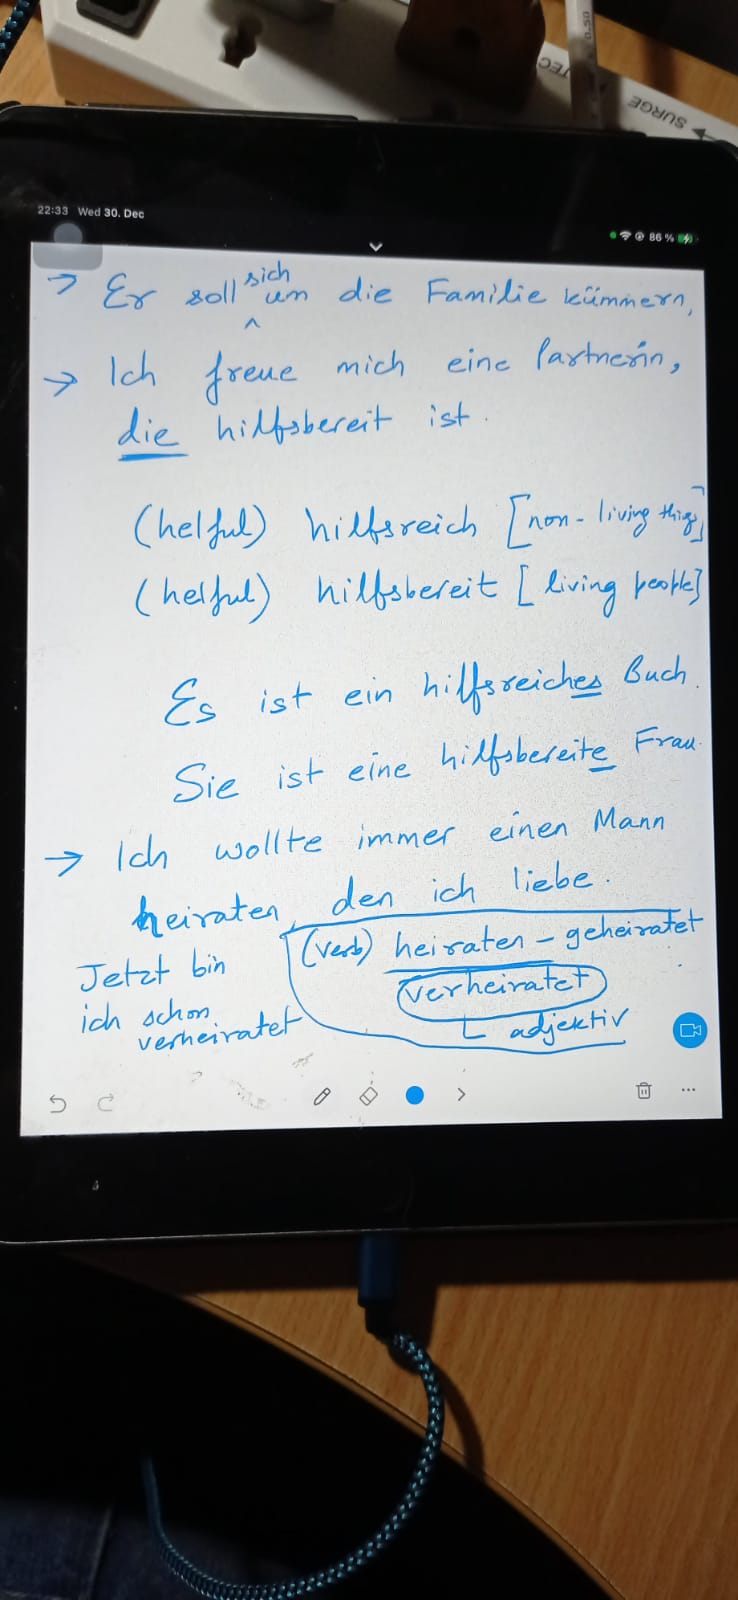 0-50
TEC
SURGE
22:33 Wed 30. Dec
86 %
→ Er soll sich um die Familie kümmern,
→ Ich freue mich eine Partnerin,
die hilfsbereit ist.
(helful) hilfsreich [non-living thigs]
(helful) hilfsbereit [living people]
Es ist ein hilfsreiches Buch.
Sie ist eine hilfsbereite Frau.
→ Ich wollte immer einen Mann
heiraten, den ich liebe.
(verb) heiraten - geheiratet
verheiratet
adjektiv
Jetzt bin
ich schon
verheiratet